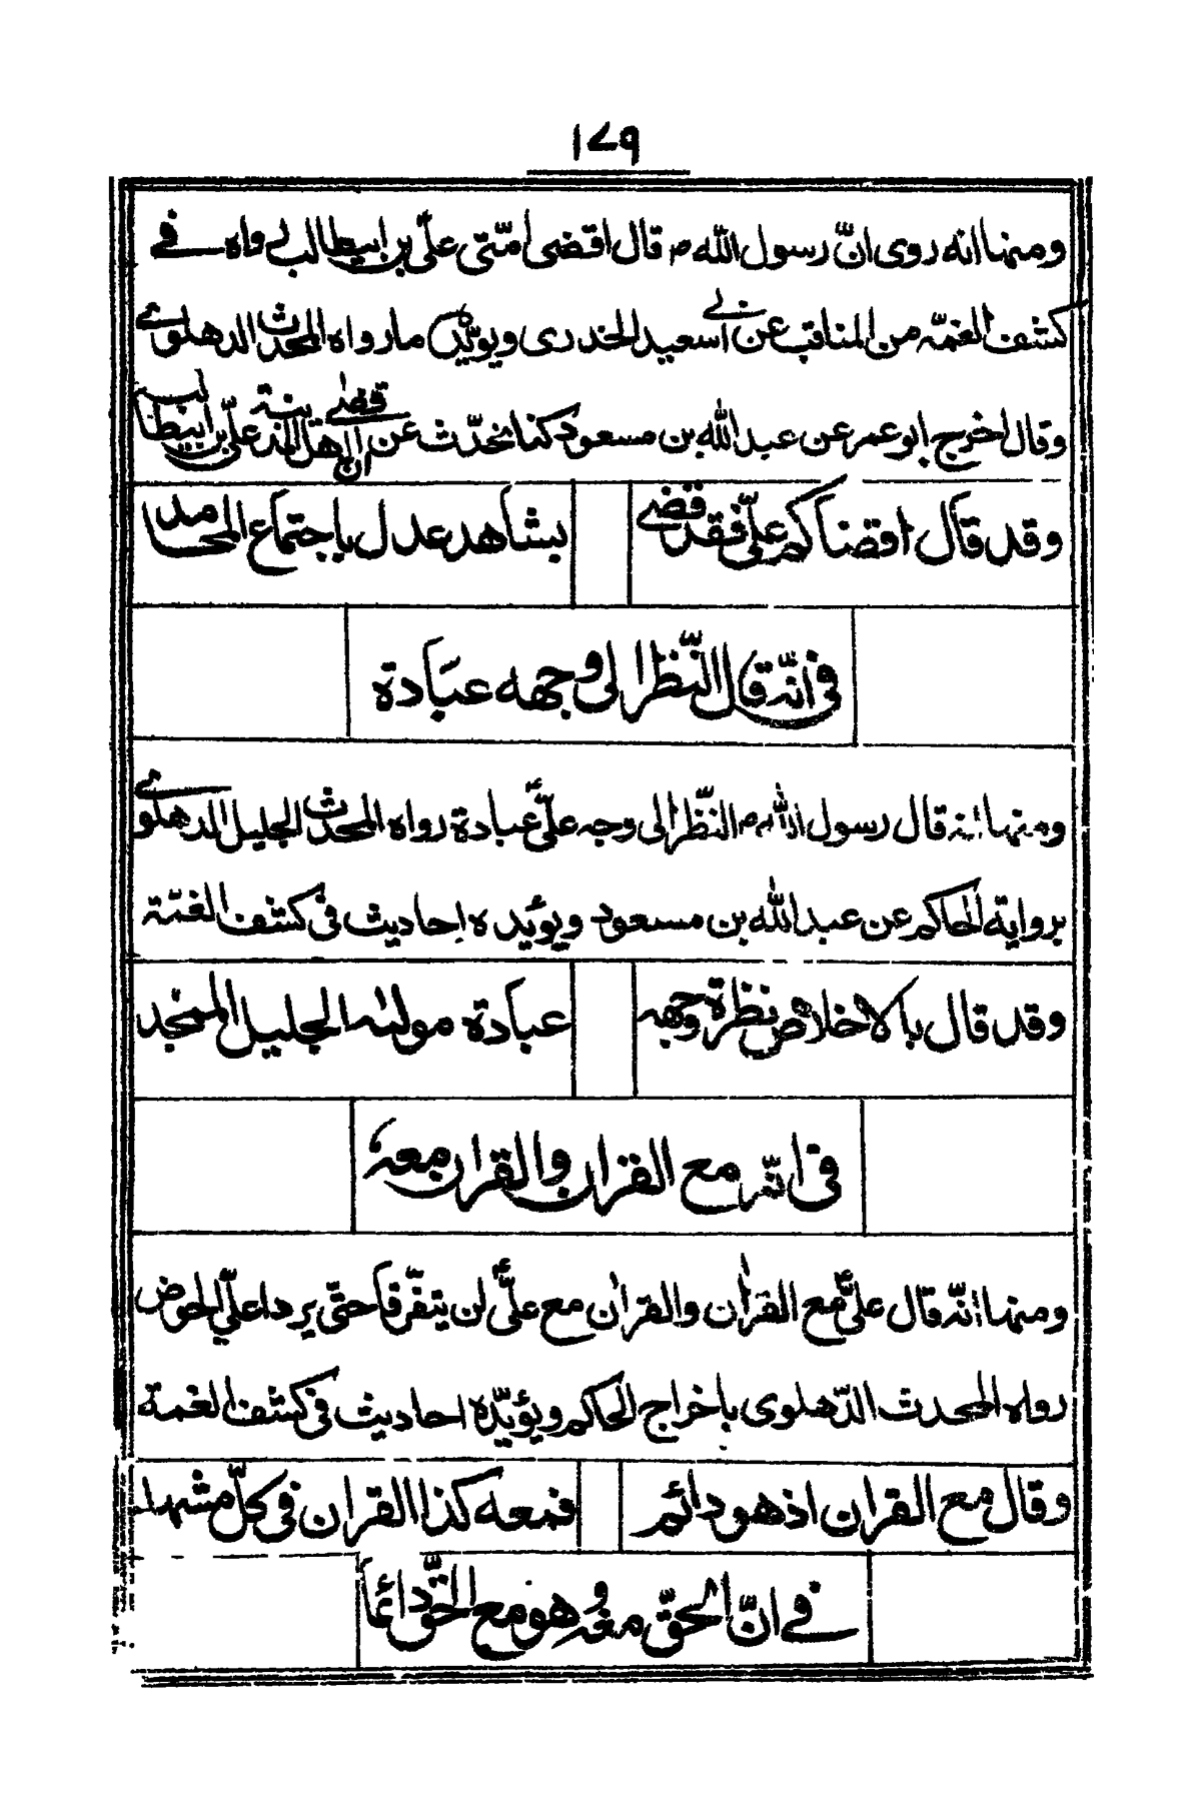 ١٧٩
ومنها انه روى انّ رسول الله ص قال اقضى امّتى علىّ بن ابيطالب رواه فے
كشف الغمّه من المناقب عن ابى سعيد الخدرى ويؤيّده ما رواه المحدث الدهلوى
وقال اخرج ابو عمر عن عبد الله بن مسعود كنا نتحدّث عن ان اقضى اهل المدينة علىّ بن ابيطالب
وقد قال اقضاكم علىّ فقد قضى بشاهد عدل باجتماع المحامد
فى انّه قال النّظر الى وجهه عبادة
ومنها انه قال رسول الله ص النّظر الى وجه علىّ عبادة رواه المحدث الجليل الدهلوى
برواية الحاكم عن عبد الله بن مسعود ويؤيده احاديث فى كشف الغمّة
وقد قال بالاخلاص نظرة وجهه عبادة مولىه الجليل الممجد
فى انّه مع القران والقران معه
ومنها انّه قال علىّ مع القران والقران مع علىّ لن يتفرّقا حتّى يردا علىّ الحوض
رواه المحدث الدّهلوى باخراج الحاكم ويؤيّده احاديث فى كشف الغمة
وقال مع القران اذ هو دائم فمعه كذا القران فى كلّ مشهد
فے انّ الحقّ معه وهو مع الحقّ دائما